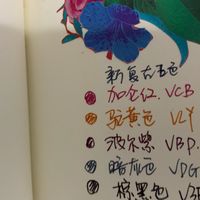 新复古五色
加仑红. VCB
驼黄色 VLY
波尔紫. VBP.
暗灰色 VDG
棕黑色